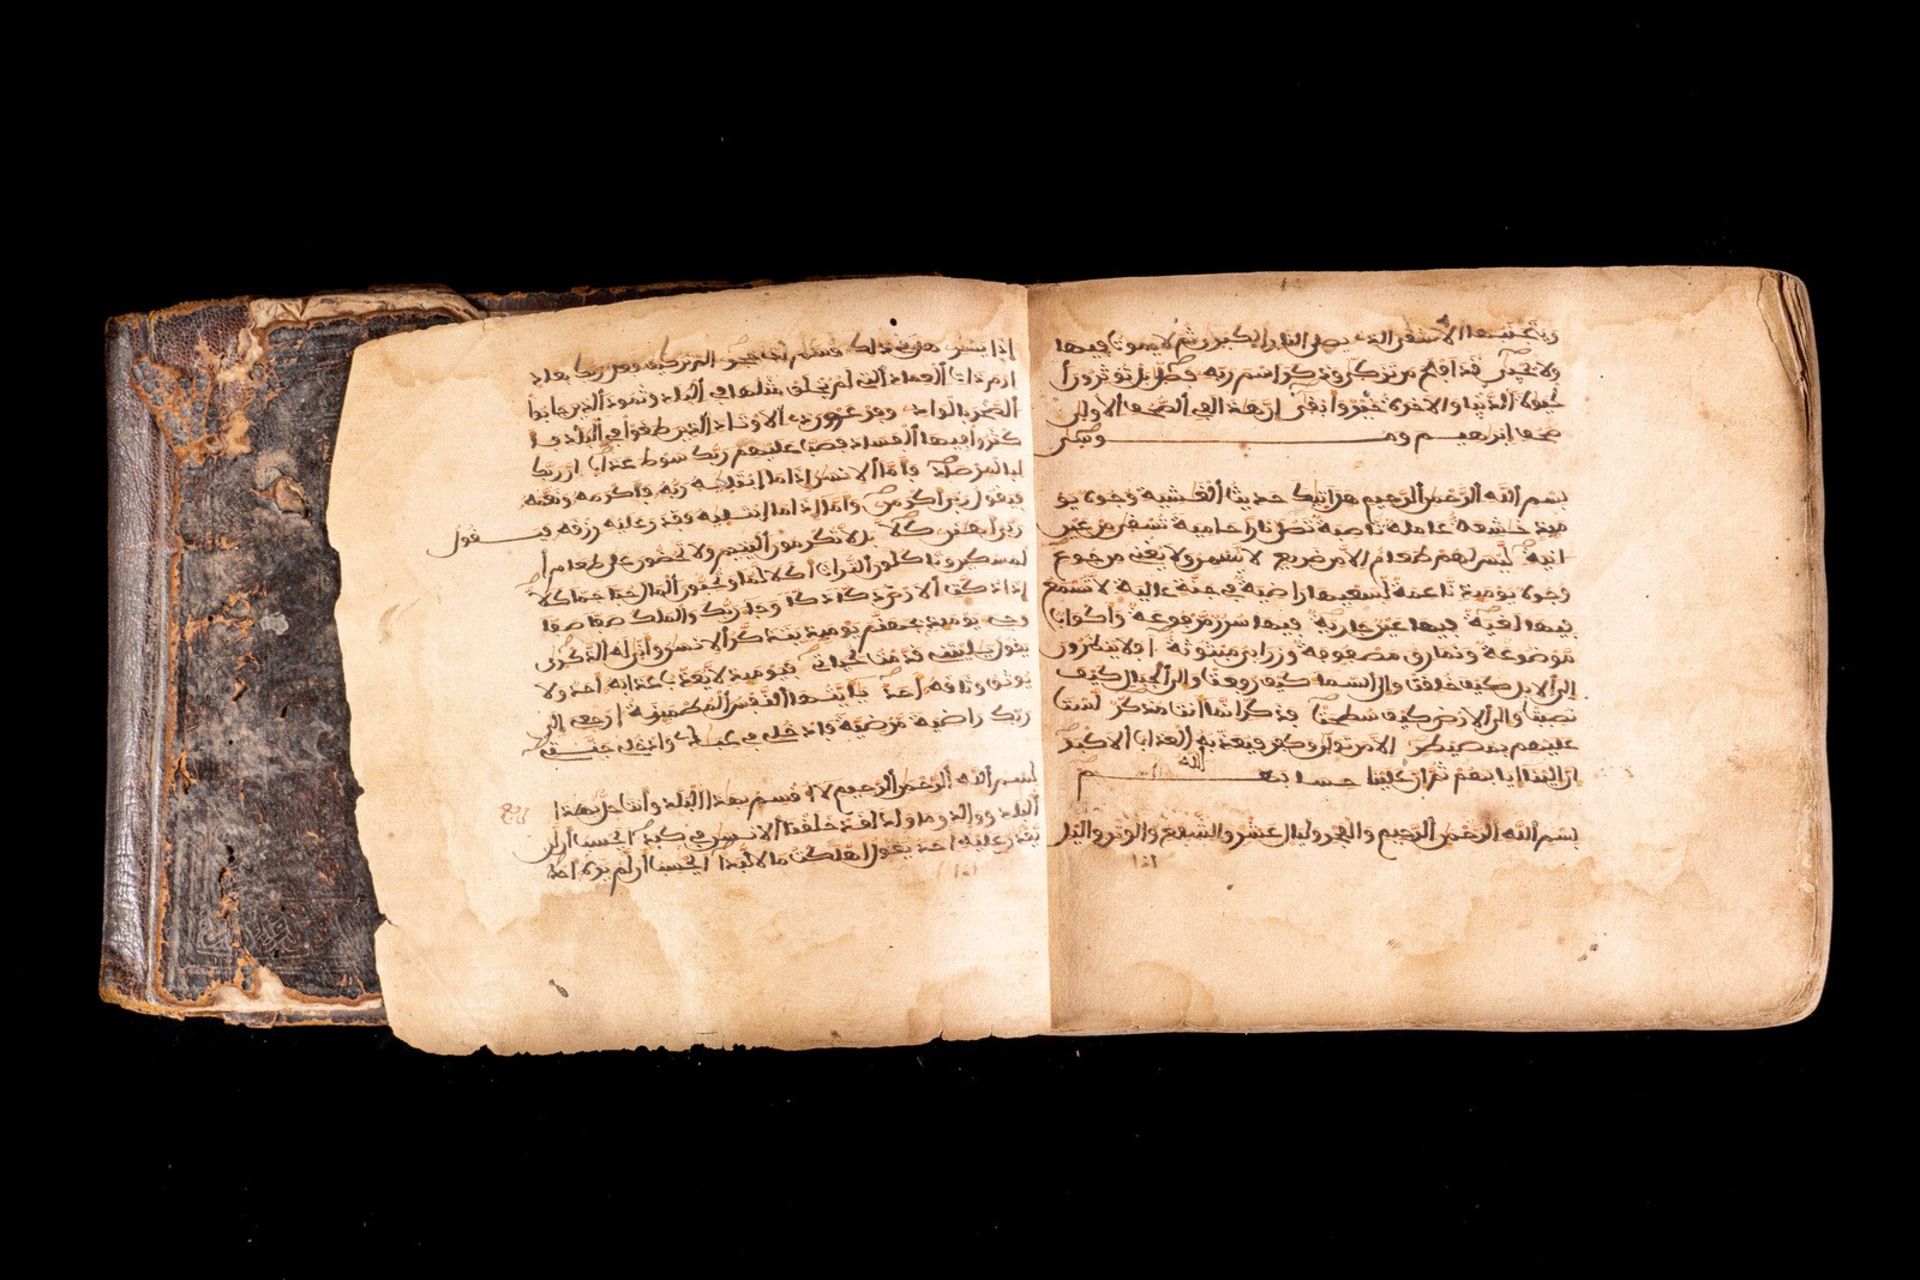 ويتجنبها الاشقى الذي يصلى النار الكبرى ثم لا يموت فيها
ولا يحيى قد افلح من تزكى وذكر اسم ربه فصلى بل توثرون ا
لحيوة الدنيا والاخرة خير وابقى ان هذا لفي الصحف الاولى
صحف ابرهيم وموسى
بسم الله الرحمن الرحيم هل اتيك حديث الغشية وجوه يو
ميذ خشعة عاملة ناصبة تصلى نارا حامية تسقى من عين
انية ليس لهم طعام الا من ضريع لا يسمن ولا يغني من جوع
وجوه يوميذ ناعمة لسعيها راضية في جنة عالية لا تسمع
فيها لغية فيها عين جارية فيها سرر مرفوعة واكواب
موضوعة ونمارق مصفوفة وزرابي مبثوثة افلا ينظرون
الى الابل كيف خلقت والى السما كيف رفعت والى الجبال كيف
نصبت والى الارض كيف سطحت فذكر انما انت مذكر لست
عليهم بمصيطر الا من تولى وكفر فيعذبه الله العذاب الاكبر
ان الينا ايابهم ثم ان علينا حسابهم
بسم الله الرحمن الرحيم والفجر وليال عشر والشفع والوتر واليل
اذا
اذا يسر هل في ذلك قسم لذي حجر الم تر كيف فعل ربك بعاد
ارم ذات العماد التي لم يخلق مثلها في البلد وثمود الذين جابوا
الصخر بالواد وفرعون ذي الاوتاد الذين طغوا في البلد فا
كثروا فيها الفساد فصب عليهم ربك سوط عذاب ان ربك
لبالمرصاد فاما الانسن اذا ما ابتليه ربه فاكرمه ونعمه
فيقول ربي اكرمن واما اذا ما ابتليه فقدر عليه رزقه فيقول
ربي اهنن كلا بل لا تكرمون اليتيم ولا تحضون على طعام ا
لمسكين وتاكلون التراث اكلا لما وتحبون المال حبا جما كلا
اذا دكت الارض دكا دكا وجا ربك والملك صفا صفا
وجي يوميذ بجهنم يوميذ يتذكر الانسن وانى له الذكرى
يقول يليتني قدمت لحياتي فيوميذ لا يعذب عذابه احد ولا
يوثق وثاقه احد يايتها النفس المطمينة ارجعي الى
ربك راضية مرضية فادخلي في عبدي وادخلي جنتي
بسم الله الرحمن الرحيم لا اقسم بهذا البلد وانت حل بهذا
البلد ووالد وما ولد لقد خلقنا الانسن في كبد ايحسب ان لن
يقدر عليه احد يقول اهلكت مالا لبدا ايحسب ان لم يره احد